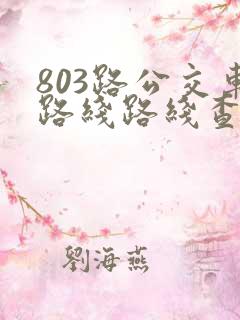 803路公交车
路线路线查
劉海燕